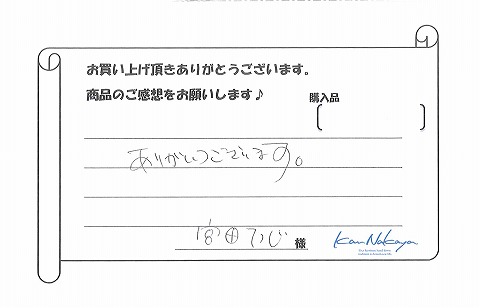 お買い上げ頂きありがとうございます。
商品のご感想をお願いします♪
購入品
ありがとうございます。
様
Kan Nakaya